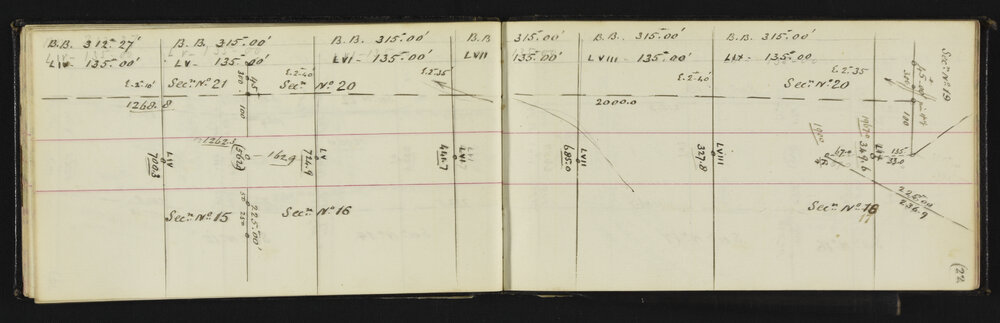 B.B. 312°27'
B.B. 315°00'
B.B. 315°00'
B.B. 315°00'
B.B. 315°00'
B.B. 315°00'
LIV - 135°00'
LV - 135°00'
LVI - 135°00'
LVII 135°00'
LVIII - 135°00'
LIX - 135°00'
E.2°10'
Secn. No 21
300. 45°
E.2°40'
Secn. No 20
E.2°35'
E.2°40'
E.2°35
Secn. No 20
Secn. No 19
1268.8
100
2000.0
100
1262.5
LIV
700.3
(562)
- 1629
LV
724.9
LVI
444.7
LVII
685.0
LVIII
327.8
349.6
135
33.0
225°00
234.9
Secn. No 15
50 250
225°00'
Secn. No 16
Secn. No 18
17
(22